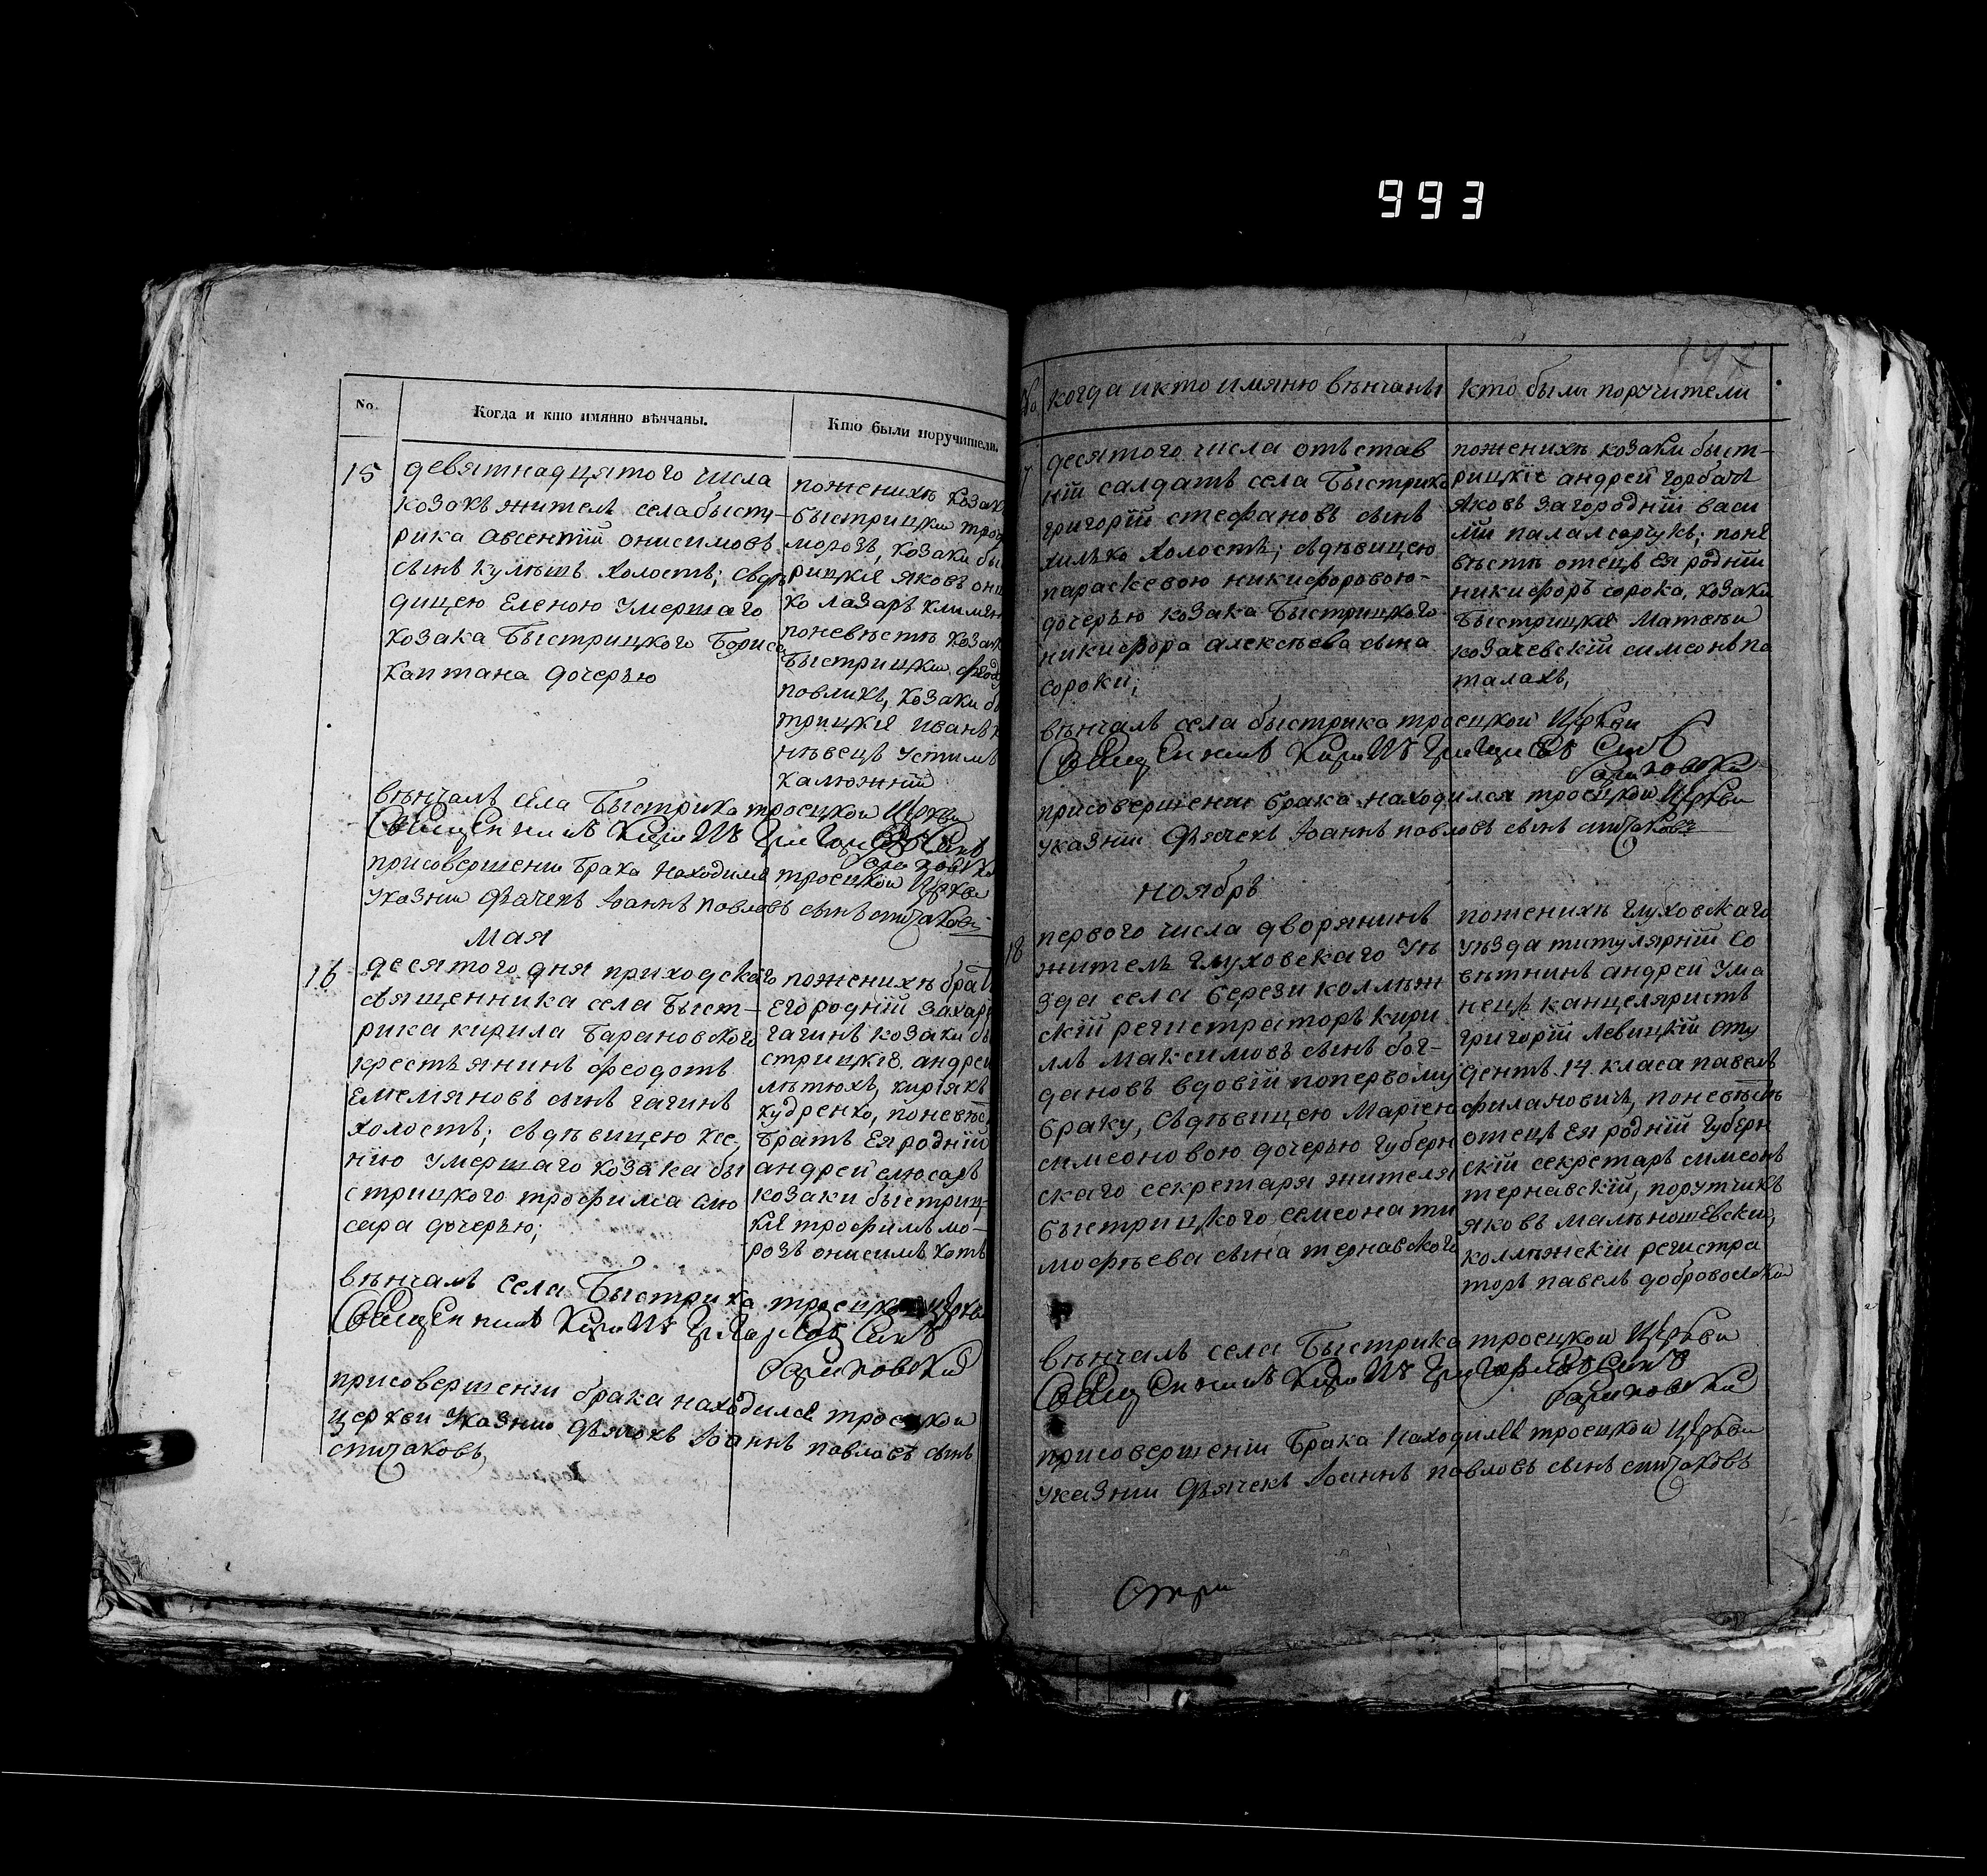 993
No.
Когда и кто имянно вѣнчаны.
Кто были поручители.
15
девятнадцятого числа
козакъ житель села быст-
рика авсентій онисимовъ
сынъ кулѣшъ холостъ; сдѣ
вицею Еленою умершаго
козака Быстрицкого Бориса
каптана дочерью
поженихѣ козак
быстрицки
морозъ, козаки бы
рицкіе яковъ
ко лазарь
поневѣстѣ козак
быстрицки
повликъ, козаки бы
трицкіе иванъ
нѣвецъ устимъ
калюжній
вѣнчалъ села Быстрика троецкой церкви
Священникъ Кирилъ Григориевъ Сынъ
присовершении брака находился троецкой церкви
указнии дьячекъ Іоаннъ павловъ сынъ
Мая
16
десятого дня приходскаго
священника села Быст-
рика кирила Барановского
крестьянинъ феодотъ
Емельяновъ сынъ гагинъ
холостъ; сдѣвицею ксе
нию умершаго козака бы
стрицкого трофима слю
сара дочерью;
поженихѣ братъ
Его родній захар
гагинъ козаки бы
стрицкіе андрей
лѣтюхъ, киріякъ
кудренко, поневѣс
братъ Ея родній
андрей слюсарь
козаки быстриц-
кіе трофимъ мо-
розъ онисимъ котъ
вѣнчалъ села Быстрика троецкой церкви
Священникъ Кирилъ Григориевъ Сынъ
присовершении брака находился троецкой
церкви указнии дьячокъ Іоаннъ павловъ сынъ
No.
когда икто имянно вѣнчаны
кто были поручители
7
десятого числа отъстав
ній салдатъ села Быстрика
григорій стефановъ сынъ
хилько холостъ; сдѣвицею
параскевою никифоровою-
дочерью козака Быстрицкого
никифора алексѣева сына
сороки;
поженихѣ козаки быст-
рицкіе андрей горбачъ
яковъ загородній васи
лій; поне
вѣстѣ отецъ ея родній
никифоръ сорока, козаки
Быстрицкіе Матвѣй
козачевскій симеонъ по
талахъ,
вѣнчалъ села быстрика троецкой церкви
Священникъ Кирилъ Григориевъ Сынъ
присовершении брака находился троецкой церкви
указнии дьячекъ Іоаннъ павловъ сынъ
ноябрь
18
первого числа дворянинъ
житель глуховскаго уѣ
зда села берези коллѣж
скій регистраторъ кири
лъ максимовъ сынъ бог-
дановъ вдовій попервому
браку, сдѣвицею Маріею
симеоновою дочерью губерн
скаго секретаря жителя
быстрицкого семеона ти
мофѣева сына тернавского
поженихѣ глуховскаго
уѣзда титулярній со
вѣтникъ андрей ума
нецъ канцеляристъ
григорій левицкій сту
дентъ 14 класа павелъ
филановичъ, поневѣстѣ
отецъ ея родній губерн
скій секретарь симеонъ
тернавскій, порутчикъ
яковъ
коллѣжскій регистра
торъ павелъ доброволскій
вѣнчалъ села Быстрика троецкой церкви
Священникъ Кирилъ Григориевъ Сынъ
присовершеніи Брака Находился троецкой церкви
указнии дьячекъ Іоаннъ павловъ сынъ